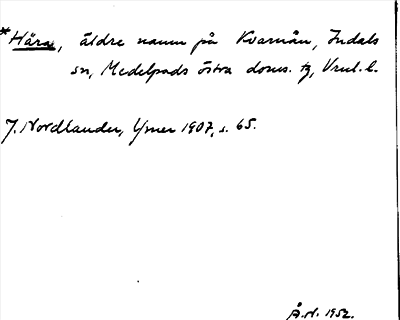 *Hära, äldre namn på Kvarnån, Indals
sn, Medelpads östra doms. tg, Vnl. l.
J. Nordlander, Ymer 1907, s. 65.
Å.N. 1952.